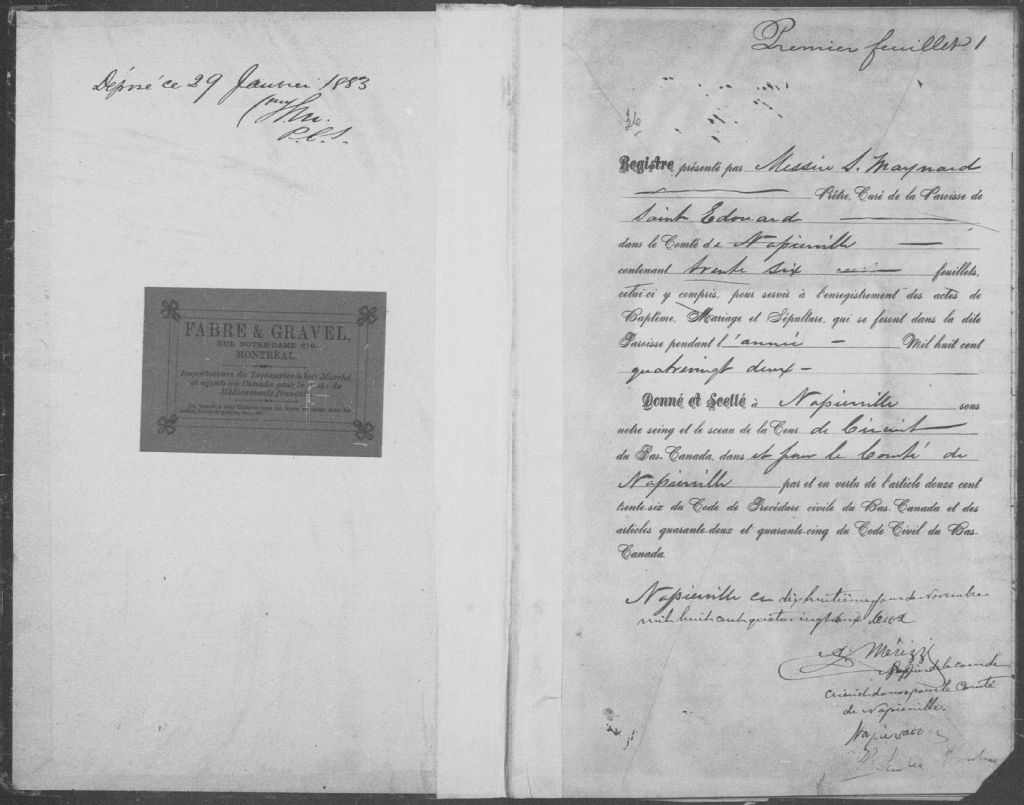 Déposé ce 29 Janvier 1883
P.C.S.
FABRE & GRAVEL,
RUE NOTRE-DAME 219,
MONTRÉAL.
Importateurs de Tapisseries à bon Marché
et agents au Canada pour la vente de
Médicaments français
Premier feuillet 1
36
Registre présenté par Messire S. Maynard
Prêtre, Curé de la Paroisse de
Saint Edouard
dans le Comté de Napierville
contenant trente six feuillets,
celui-ci y compris, pour servir à l'enregistrement des actes de
Baptême, Mariage et Sépulture, qui se feront dans la dite
Paroisse pendant l'année Mil huit cent
quatrevingt deux
Donné et Scellé à Napierville sous
notre seing et le sceau de la Cour de Circuit
du Bas-Canada, dans et pour le Comté de
Napierville par et en vertu de l'article douze cent
trente-six du Code de Procédure civile du Bas-Canada et des
articles quarante-deux et quarante-cinq du Code Civil du Bas-
Canada.
Napierville ce dix huitième jour de Novembre
mil huit cent quatrevingt
A. Mérizzi
Greffier de la cour de
circuit dans et pour le Comté
de Napierville.